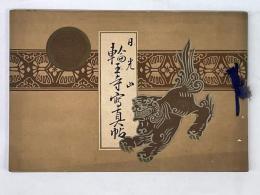 日光山
輪王寺寫真帖